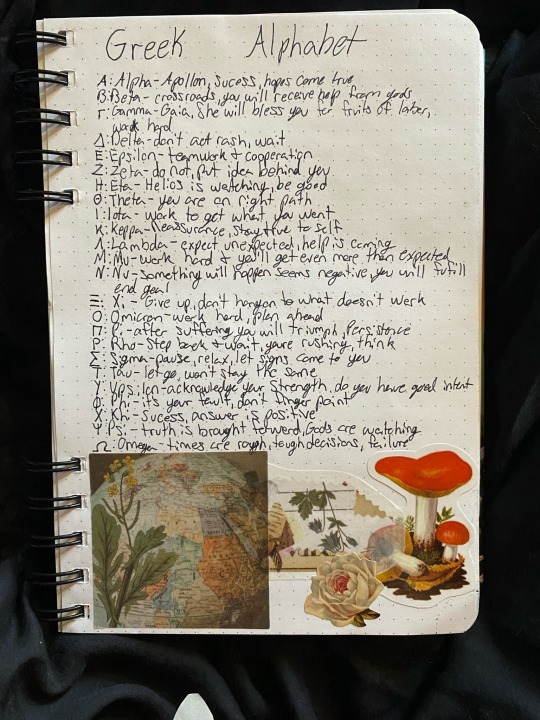 Greek Alphabet
A: Alpha - Apollon, sucess, hopes come true
B: Beta - crossroads, you will receive help from gods
Γ: Gamma - Gaia, She will bless you for fruits of labor,
work hard
Δ: Delta - don't act rash, wait
E: Epsilon - teamwork & cooperation
Z: Zeta - do not, put idea behind you
H: Eta - Helios is watching, be good
Θ: Theta - you are on right path
I: Iota - work to get what you want
K: Kappa - Reassurance, stay true to self
Λ: Lambda - expect unexpected, help is coming
M: Mu - work hard & you'll get even more than expected
N: Nu - something will happen seems negative, you will fufill
end goal
Ξ: Xi - Give up, don't hang on to what doesn't work
O: Omicron - work hard, plan ahead
Π: Pi - after suffering you will triumph, Persistence
P: Rho - Step back & wait, youre rushing, think
Σ: Sigma - pause, relax, let signs come to you
T: Tau - let go, wont stay the same
Y: Upsilon - acknowledge your strength, do you have good intent
Φ: Phi - its your fault, don't finger point
X: Khi - Sucess, answer is positive
Ψ: Psi - truth is brought forward, Gods are watching
Ω: Omega - times are rough, tough decisions, failure